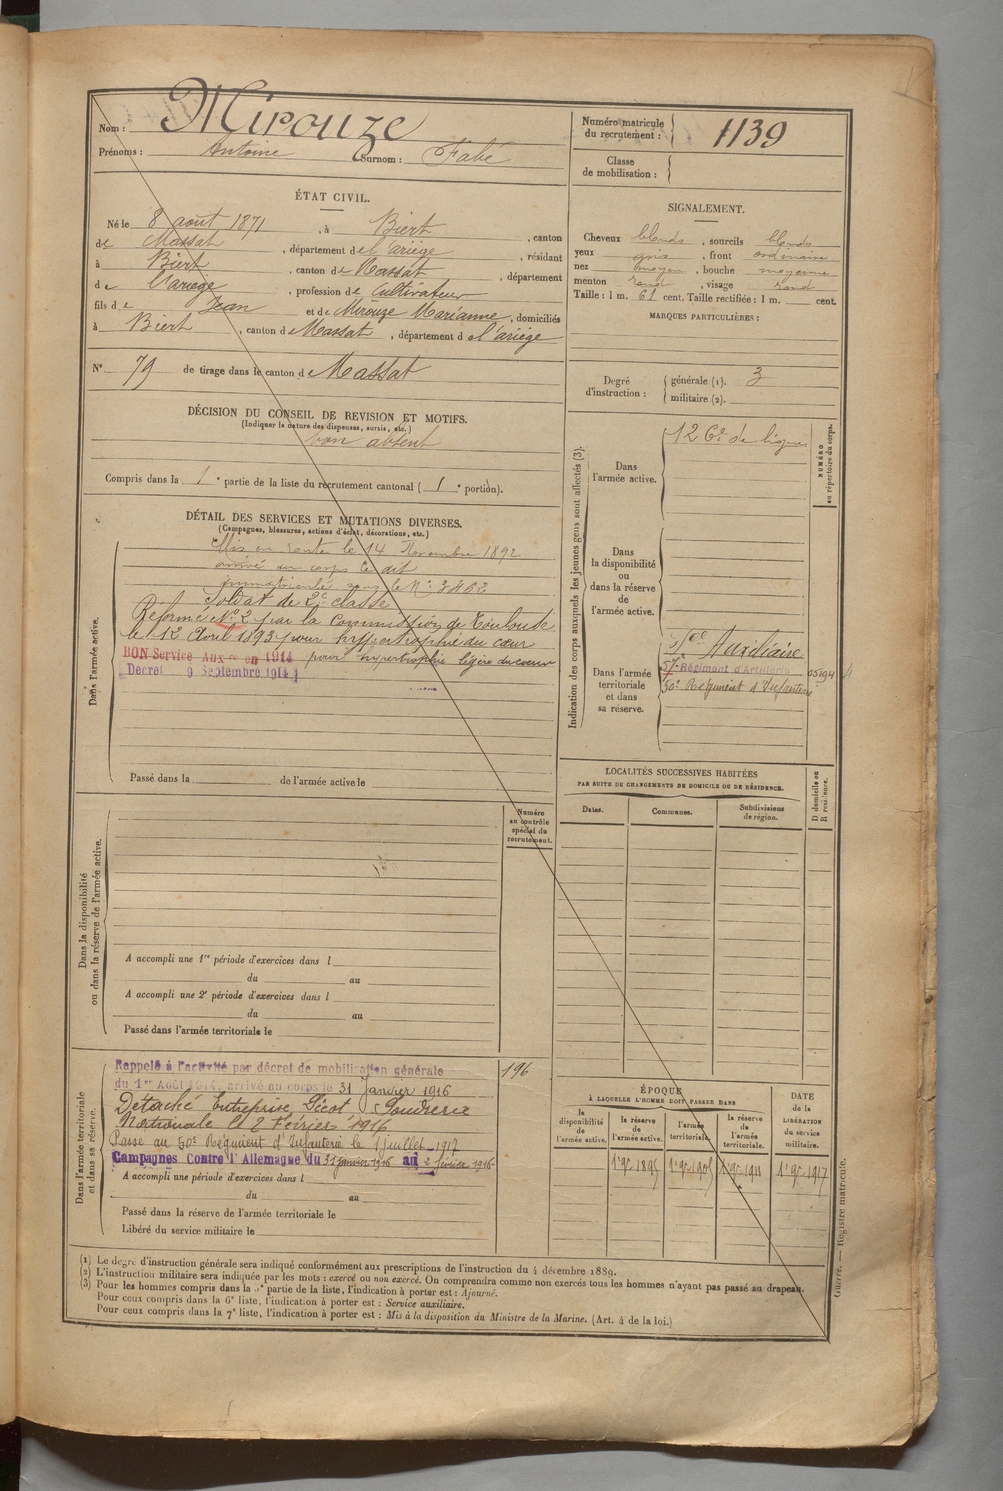 Nom : Mirouze
Prénoms : Antoine Surnom : Fabé
Numéro matricule du recrutement : 1139
Classe de mobilisation :
ÉTAT CIVIL.
Né le 8 août 1871, à Biert, canton
de Massat, département de l'ariège, résidant
à Biert, canton de Massat, département
de l'ariège, profession de Cultivateur
fils de Jean et de Mirouze Marianne, domiciliés
à Biert, canton de Massat, département de l'ariège
N° 79 de tirage dans le canton de Massat
DÉCISION DU CONSEIL DE REVISION ET MOTIFS.
(Indiquer la nature des dispenses, sursis, etc.)
bon absent
Compris dans la 1e partie de la liste du recrutement cantonal (1e portion).
SIGNALEMENT.
Cheveux blonds, sourcils blonds
yeux gris, front ordinaire
nez moyen, bouche moyenne
menton rond, visage rond
Taille : 1 m. 61 cent. Taille rectifiée : 1 m. cent.
MARQUES PARTICULIÈRES :
Degré d'instruction : générale (1). 3
militaire (2).
DÉTAIL DES SERVICES ET MUTATIONS DIVERSES.
(Campagnes, blessures, actions d'éclat, décorations, etc.)
Dans l'armée active.
Mis en route le 14 Novembre 1892
arrivé au corps le dit
immatriculé sous le N° 3462
Soldat de 2e classe
Réformé N° 2 par la Commission de Toulouse
le 12 Avril 1893 pour hypertrophie du cœur
BON Service Auxre en 1914 pour hypertrophie légère du cœur
Décret 9 Septembre 1914
Passé dans la de l'armée active le
Indication des corps auxquels les jeunes gens sont affectés (3).
NUMÉRO au répertoire du corps.
Dans l'armée active.
126e de ligne
Dans la disponibilité ou dans la réserve de l'armée active.
Dans l'armée territoriale et dans sa réserve.
Sce Auxiliaire
57e Régiment d'Artillerie 05194
50e Régiment d'Infanterie
LOCALITÉS SUCCESSIVES HABITÉES
PAR SUITE DE CHANGEMENTS DE DOMICILE OU DE RÉSIDENCE.
Dates. Communes. Subdivisions de région. D domicile ou R résidence.
Numéro au contrôle spécial du recrutement.
Dans la disponibilité ou dans la réserve de l'armée active.
A accompli une 1re période d'exercices dans l
du au
A accompli une 2e période d'exercices dans l
du au
Passé dans l'armée territoriale le
Dans l'armée territoriale et dans sa réserve.
Rappelé à l'activité par décret de mobilisation générale 196
du 1er Août 1914, arrivé au corps le 31 Janvier 1916
Détaché Entreprise Picot Poudrerie
Nationale le 2 Février 1916
Passé au 50e Régiment d'Infanterie le 1 juillet 1917
Campagnes Contre l'Allemagne du 31 janvier 1916 au 2 février 1916
A accompli une période d'exercices dans l
du au
Passé dans la réserve de l'armée territoriale le
Libéré du service militaire le
ÉPOQUE
À LAQUELLE L'HOMME DOIT PASSER DANS
la disponibilité de l'armée active.
la réserve de l'armée active.
l'armée territoriale.
la réserve de l'armée territoriale.
DATE de la LIBÉRATION du service militaire.
1er 9bre 1895 1er 9bre 1905 1er 9bre 1911 1er 9bre 1917
(1) Le degré d'instruction générale sera indiqué conformément aux prescriptions de l'instruction du 4 décembre 1889.
(2) L'instruction militaire sera indiquée par les mots : exercé ou non exercé. On comprendra comme non exercés tous les hommes n'ayant pas passé au drapeau.
(3) Pour les hommes compris dans la partie de la liste, l'indication à porter est : Ajourné.
Pour ceux compris dans la 6e liste, l'indication à porter est : Service auxiliaire.
Pour ceux compris dans la 7e liste, l'indication à porter est : Mis à la disposition du Ministre de la Marine. (Art. 4 de la loi.)
Guerre. — Registre matricule.